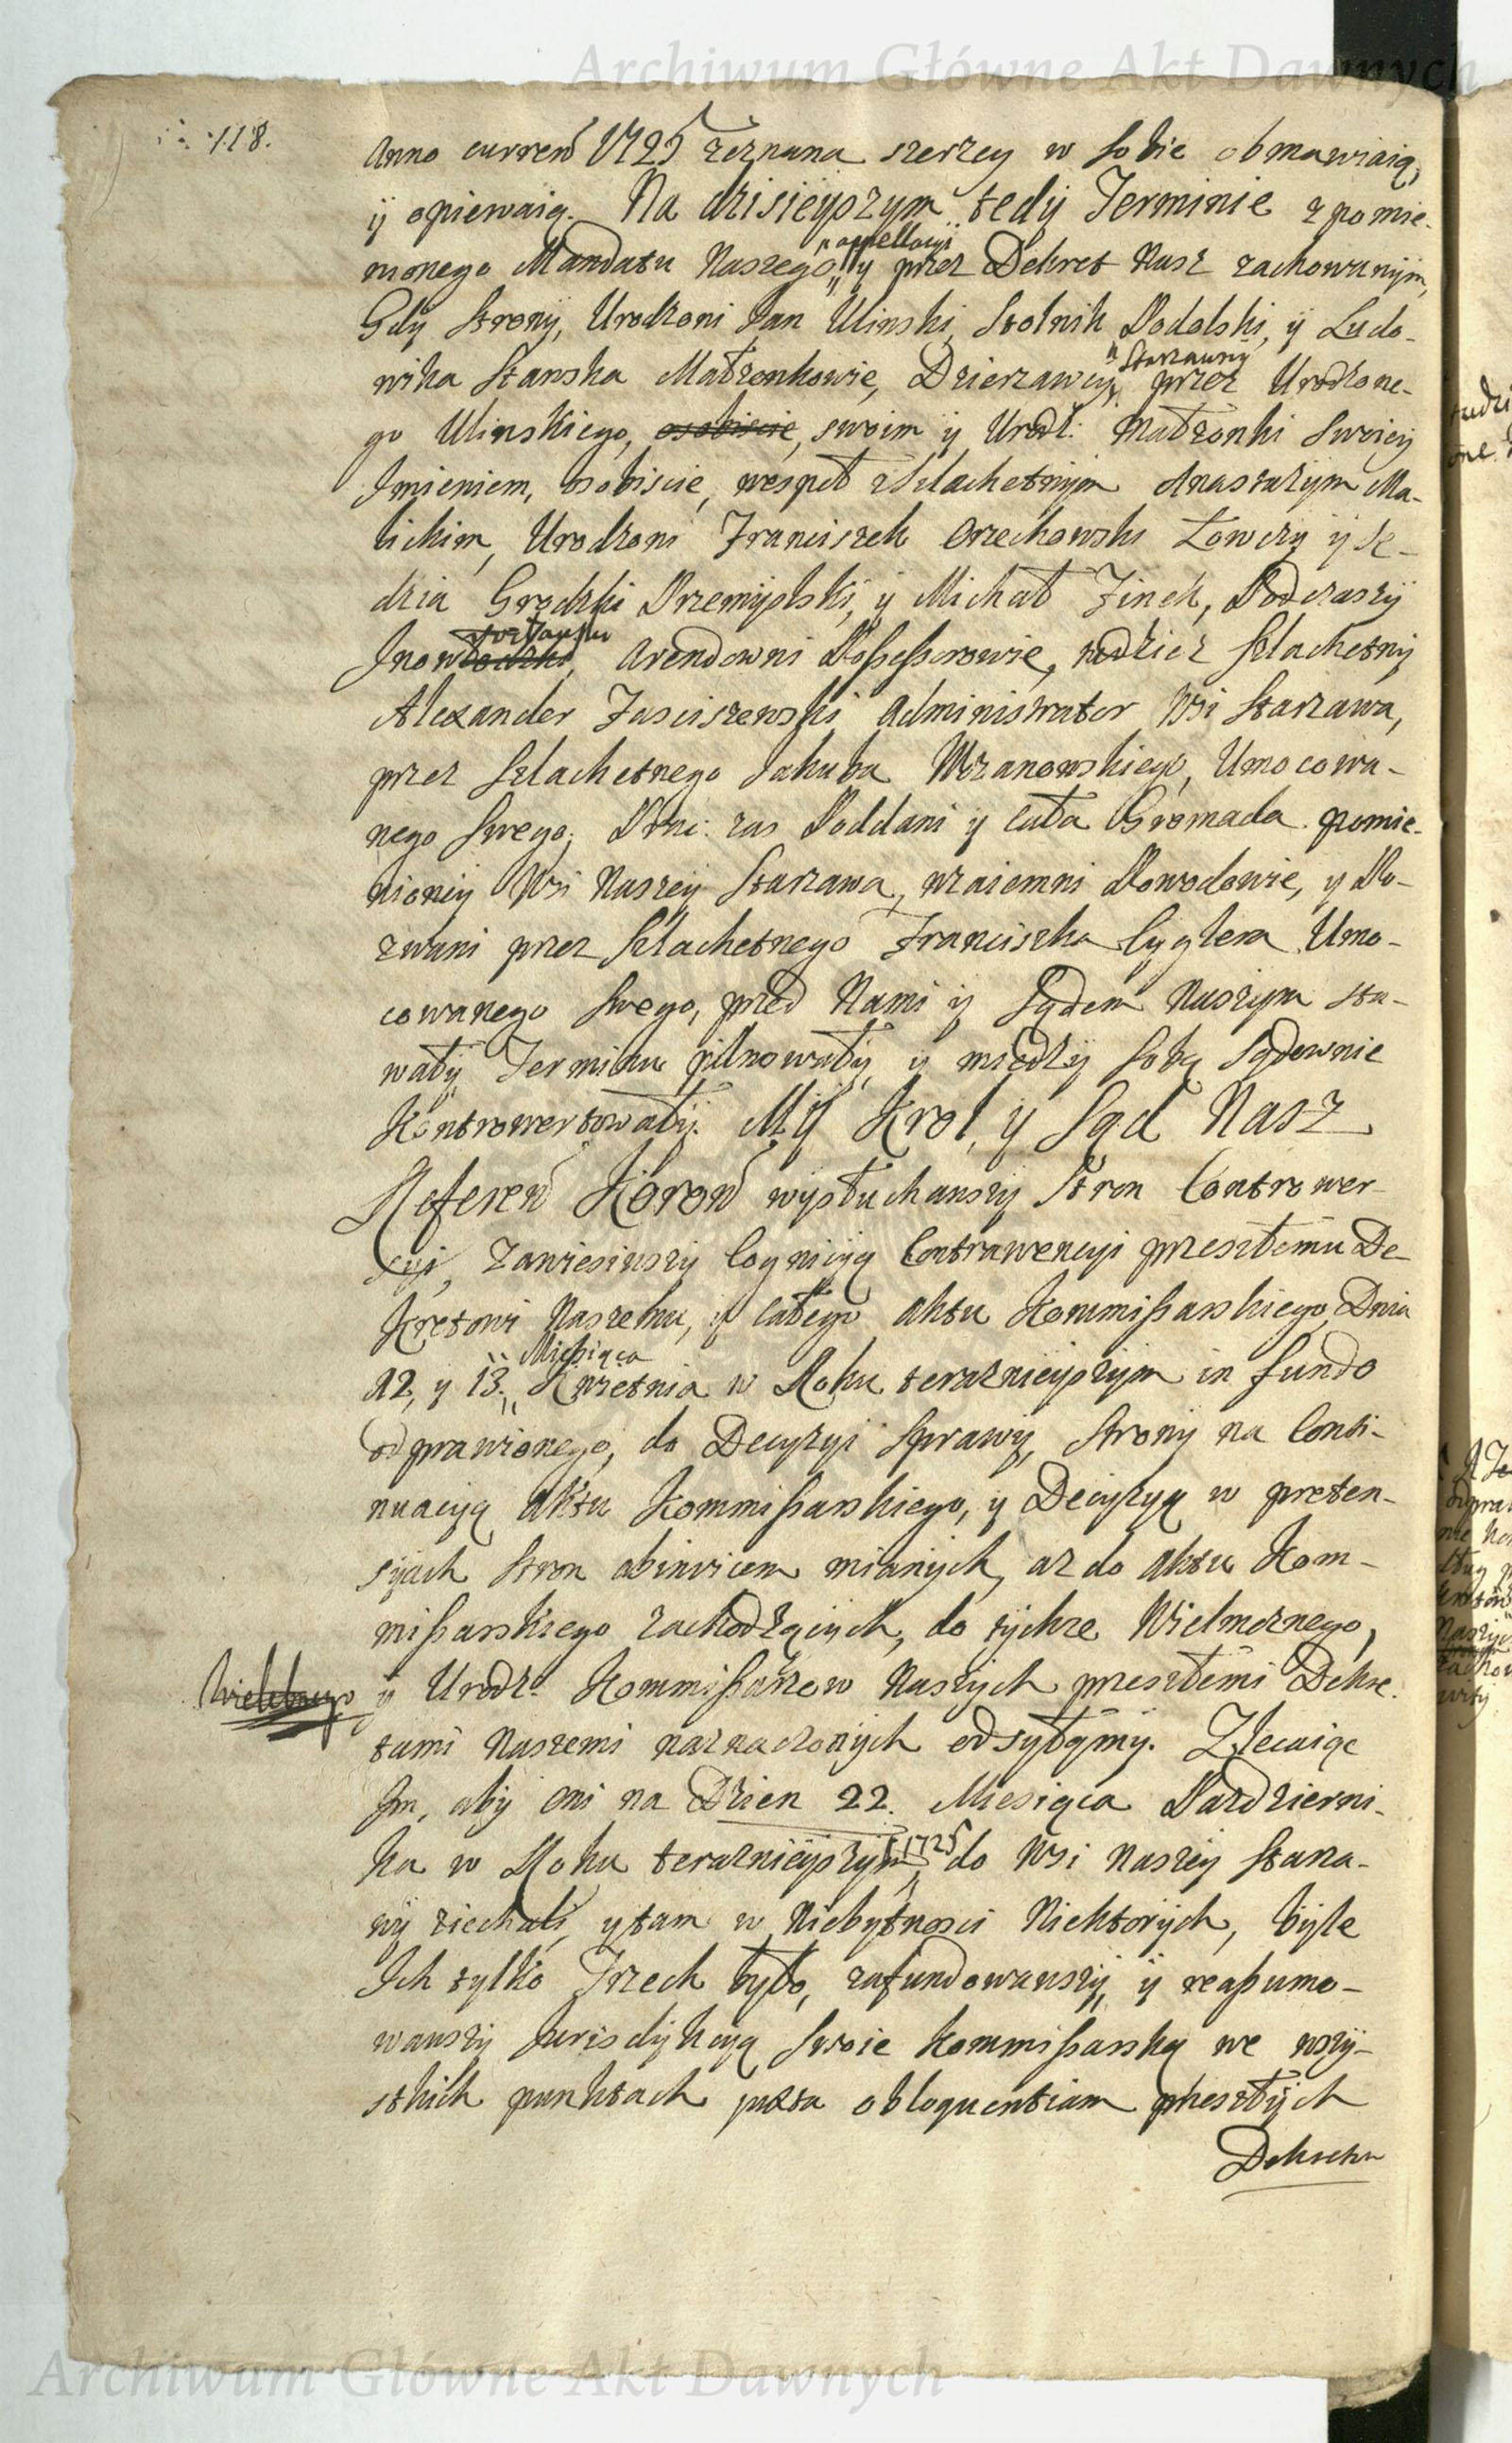 Archiwum Główne Akt Dawnych
118.
Anno curren 1725 zeznana szerzey w sobie obmawiaią,
ÿ opiewaią. Na dzisieÿszym tedÿ Terminie z pomie-
nionego Mandatu Naszego „appellacyi„ y przez Dekret Nasz zachowanÿm,
Gdÿ Stronÿ, Urodzoni Jan Ulinski, Stolnik Podolski, ÿ Ludo-
wika Starska Małżonkowie, Dzierzawcy „Starzawy przez Urodzone-
go Ulinskiego, osobiscie, swoim ÿ Urodz: Małżonki Swoieÿ
Imieniem, osobiscie, wespoł z Szlachetnÿm Anastazÿm Ma-
lickim, Urodzoni Franciszek Orzechowski Łowczÿ ÿ Sę-
dzia Grodzki Przemÿslski, ÿ Michał Finck, Podczaszÿ
Inowłodzki, Arendowni Possessorowie, tudziez Szlachetnÿ
Alexander Jasciszewski Administrator Wsi Starzawa,
przez Szlachetnego Jakuba Wrzanowskiego, Umocowa-
nego Swego; Prac: zas Poddani ÿ cała Gromada pomie-
nioneÿ Wsi Naszeÿ Starzawa, wzaiemni Powodowie, y Po-
zwani przez Szlachetnego Franciszka Cyglera Umo-
cowanego Swego, przed Nami ÿ Sądem Naszÿm sta-
wałÿ Terminu pilnowałÿ, y międzÿ sobą Sądownie
Kontrowertowałÿ. Mÿ Krol, y Sąd Nasz
Referen Koron wÿsłuchawszÿ Stron Contrower-
syi, Zawiesiwszÿ Cognicyą Contrawencyi przeszłemu De-
kretowi Naszemu, ÿ całego Aktu Kommissarskiego Dnia
12, y 13. „Miesiąca Kwietnia w Roku terazniеÿszÿm in fundo
odprawionego, do Decyzyi Sprawÿ, Stronÿ na Conti-
nuacyą Aktu Kommissarskiego, ÿ Decyzyą w preten-
sÿach Stron abinvicem mianÿch, az do Aktu Kom-
missarskiego zachodzącÿch, do tÿchze Wielmoznego,
Wielebnego ÿ Urodz: Kommissarzow Naszÿch przeszłemi Dekre-
tami Naszemi naznaczonÿch odsÿłamÿ. Zlecaiąc
Im, abÿ oni na Dzien 22. Miesiąca Pazdzierni-
ka w Roku terazniеÿszÿm „1725 do Wsi Naszeÿ Starza-
wÿ ziechali, ytam w Niebÿtnosci Niektorÿch, bÿle
Ich tylko Trzech bÿło, zafundowawszÿ, ÿ reassumo-
wawszÿ Jurisdÿkcyą Swoie Kommissarską we wszÿ-
stkich punktach juxta obloquentiam przeszłÿch
Dekretow
Archiwum Główne Akt Dawnych